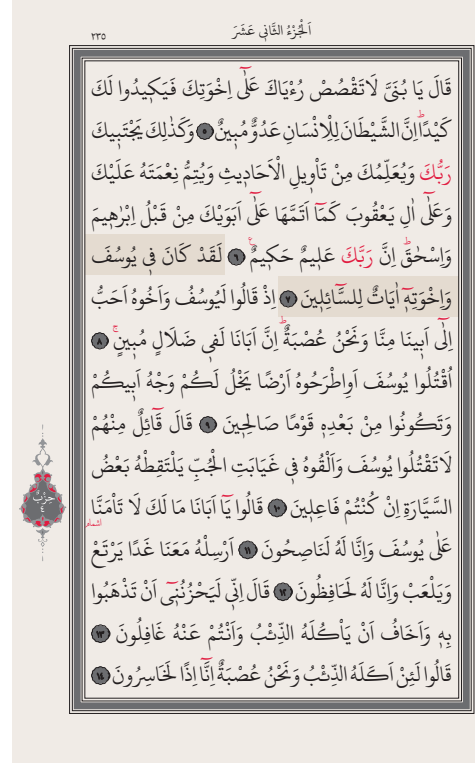 اَلْجُزْءُ الثَّانِي عَشَرَ
٢٣٥
قَالَ يَا بُنَيَّ لَا تَقْصُصْ رُءْيَاكَ عَلٰٓى اِخْوَتِكَ فَيَكٖيدُوا لَكَ
كَيْدًاۜ اِنَّ الشَّيْطَانَ لِلْاِنْسَانِ عَدُوٌّ مُبٖينٌ ٥ وَكَذٰلِكَ يَجْتَبٖيكَ
رَبُّكَ وَيُعَلِّمُكَ مِنْ تَأْوٖيلِ الْاَحَادٖيثِ وَيُتِمُّ نِعْمَتَهُ عَلَيْكَ
وَعَلٰٓى اٰلِ يَعْقُوبَ كَمَٓا اَتَمَّهَا عَلٰٓى اَبَوَيْكَ مِنْ قَبْلُ اِبْرٰهٖيمَ
وَاِسْحٰقَۜ اِنَّ رَبَّكَ عَلٖيمٌ حَكٖيمٌۚ ٦ لَقَدْ كَانَ فٖي يُوسُفَ
وَاِخْوَتِهٖٓ اٰيَاتٌ لِلسَّٓائِلٖينَ ٧ اِذْ قَالُوا لَيُوسُفُ وَاَخُوهُ اَحَبُّ
اِلٰٓى اَبٖينَا مِنَّا وَنَحْنُ عُصْبَةٌۜ اِنَّ اَبَانَا لَفٖي ضَلَالٍ مُبٖينٍۚ ٨
اُقْتُلُوا يُوسُفَ اَوِ اطْرَحُوهُ اَرْضًا يَخْلُ لَكُمْ وَجْهُ اَبٖيكُمْ
وَتَكُونُوا مِنْ بَعْدِهٖ قَوْمًا صَالِحٖينَ ٩ قَالَ قَٓائِلٌ مِنْهُمْ
لَا تَقْتُلُوا يُوسُفَ وَاَلْقُوهُ فٖي غَيَابَتِ الْجُبِّ يَلْتَقِطْهُ بَعْضُ
السَّيَّارَةِ اِنْ كُنْتُمْ فَاعِلٖينَ ١٠ قَالُوا يَٓا اَبَانَا مَا لَكَ لَا تَأْمَنَّا
اشمام
عَلٰى يُوسُفَ وَاِنَّا لَهُ لَنَاصِحُونَ ١١ اَرْسِلْهُ مَعَنَا غَدًا يَرْتَعْ
وَيَلْعَبْ وَاِنَّا لَهُ لَحَافِظُونَ ١٢ قَالَ اِنّٖي لَيَحْزُنُنٖٓي اَنْ تَذْهَبُوا
بِهٖ وَاَخَافُ اَنْ يَأْكُلَهُ الذِّئْبُ وَاَنْتُمْ عَنْهُ غَافِلُونَ ١٣
قَالُوا لَئِنْ اَكَلَهُ الذِّئْبُ وَنَحْنُ عُصْبَةٌ اِنَّٓا اِذًا لَخَاسِرُونَ ١٤
حزب
٤